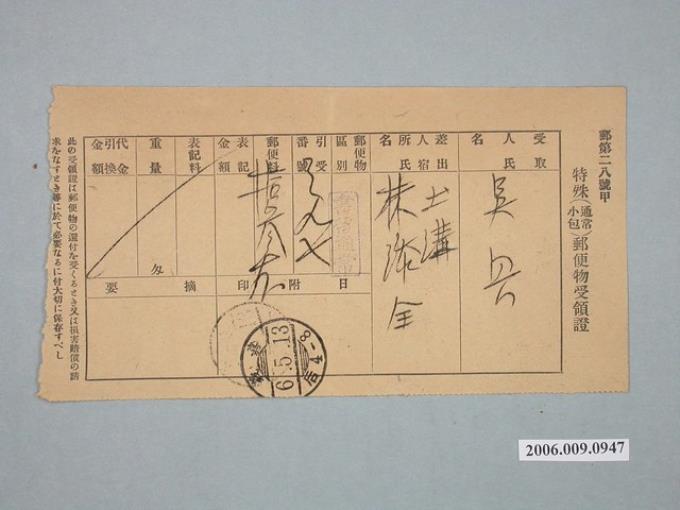 郵第二八號甲
特殊(通常小包)郵便物受領證
受取人氏名
吳
差出人宿所氏名
土溝
林
全
郵便物區別
書留通常
引受番號
郵便料
表記金額
表記料
重量
匁
代金引換金額
日附印
6.5.13
后4-8
摘要
此の受領證は郵便物の還付を受くるとき又は損害賠償の請
求をなすとき等に於て必要なるに付大切に保存すべし
2006.009.0947